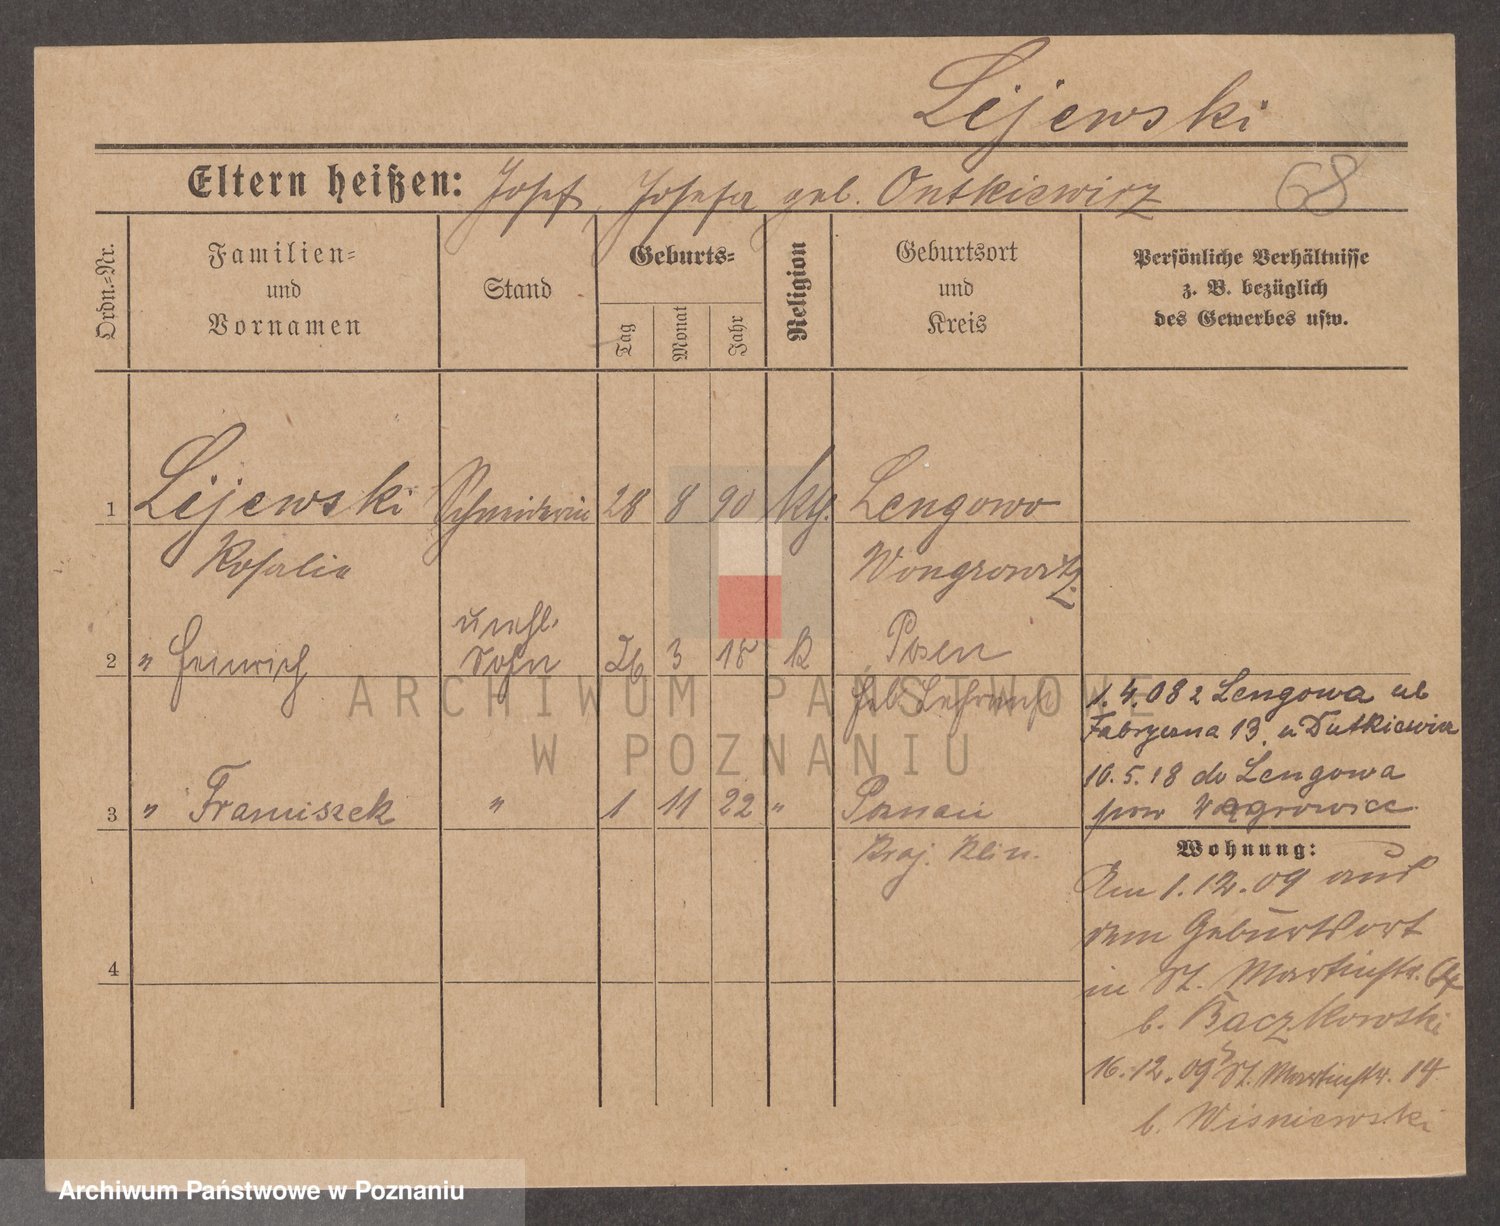 Lijewski
Eltern heißen: Josef, Josefa geb. Ontkiewicz
68
Ordn.-Nr.
Familien-
und
Vornamen
Stand
Geburts-
Tag
Monat
Jahr
Religion
Geburtsort
und
Kreis
Persönliche Verhältnisse
z. B. bezüglich
des Gewerbes usw.
1 Lijewski Schneiderin 28 8 90 kth. Lengowo
Rosalie Wongrowitz
2 " Heinrich unehl. Sohn 26 3 18 k Posen
Geb Lehranst
1.4.08 z Lengowa ul
Fabryczna 13 u Dutkiewicz
10.5.18 do Lengowa
pow Wągrowiec
3 " Franciszek " 1 11 22 " Poznań
Kraj. Klin.
4
Wohnung:
Am 1.12.09 aus
dem Geburtsort
in St. Martinstr.
b. Bączkowski
16.12.09 St. Martinstr. 14
b. Wisniewski
ARCHIWUM PAŃSTWOWE
W POZNANIU
Archiwum Państwowe w Poznaniu